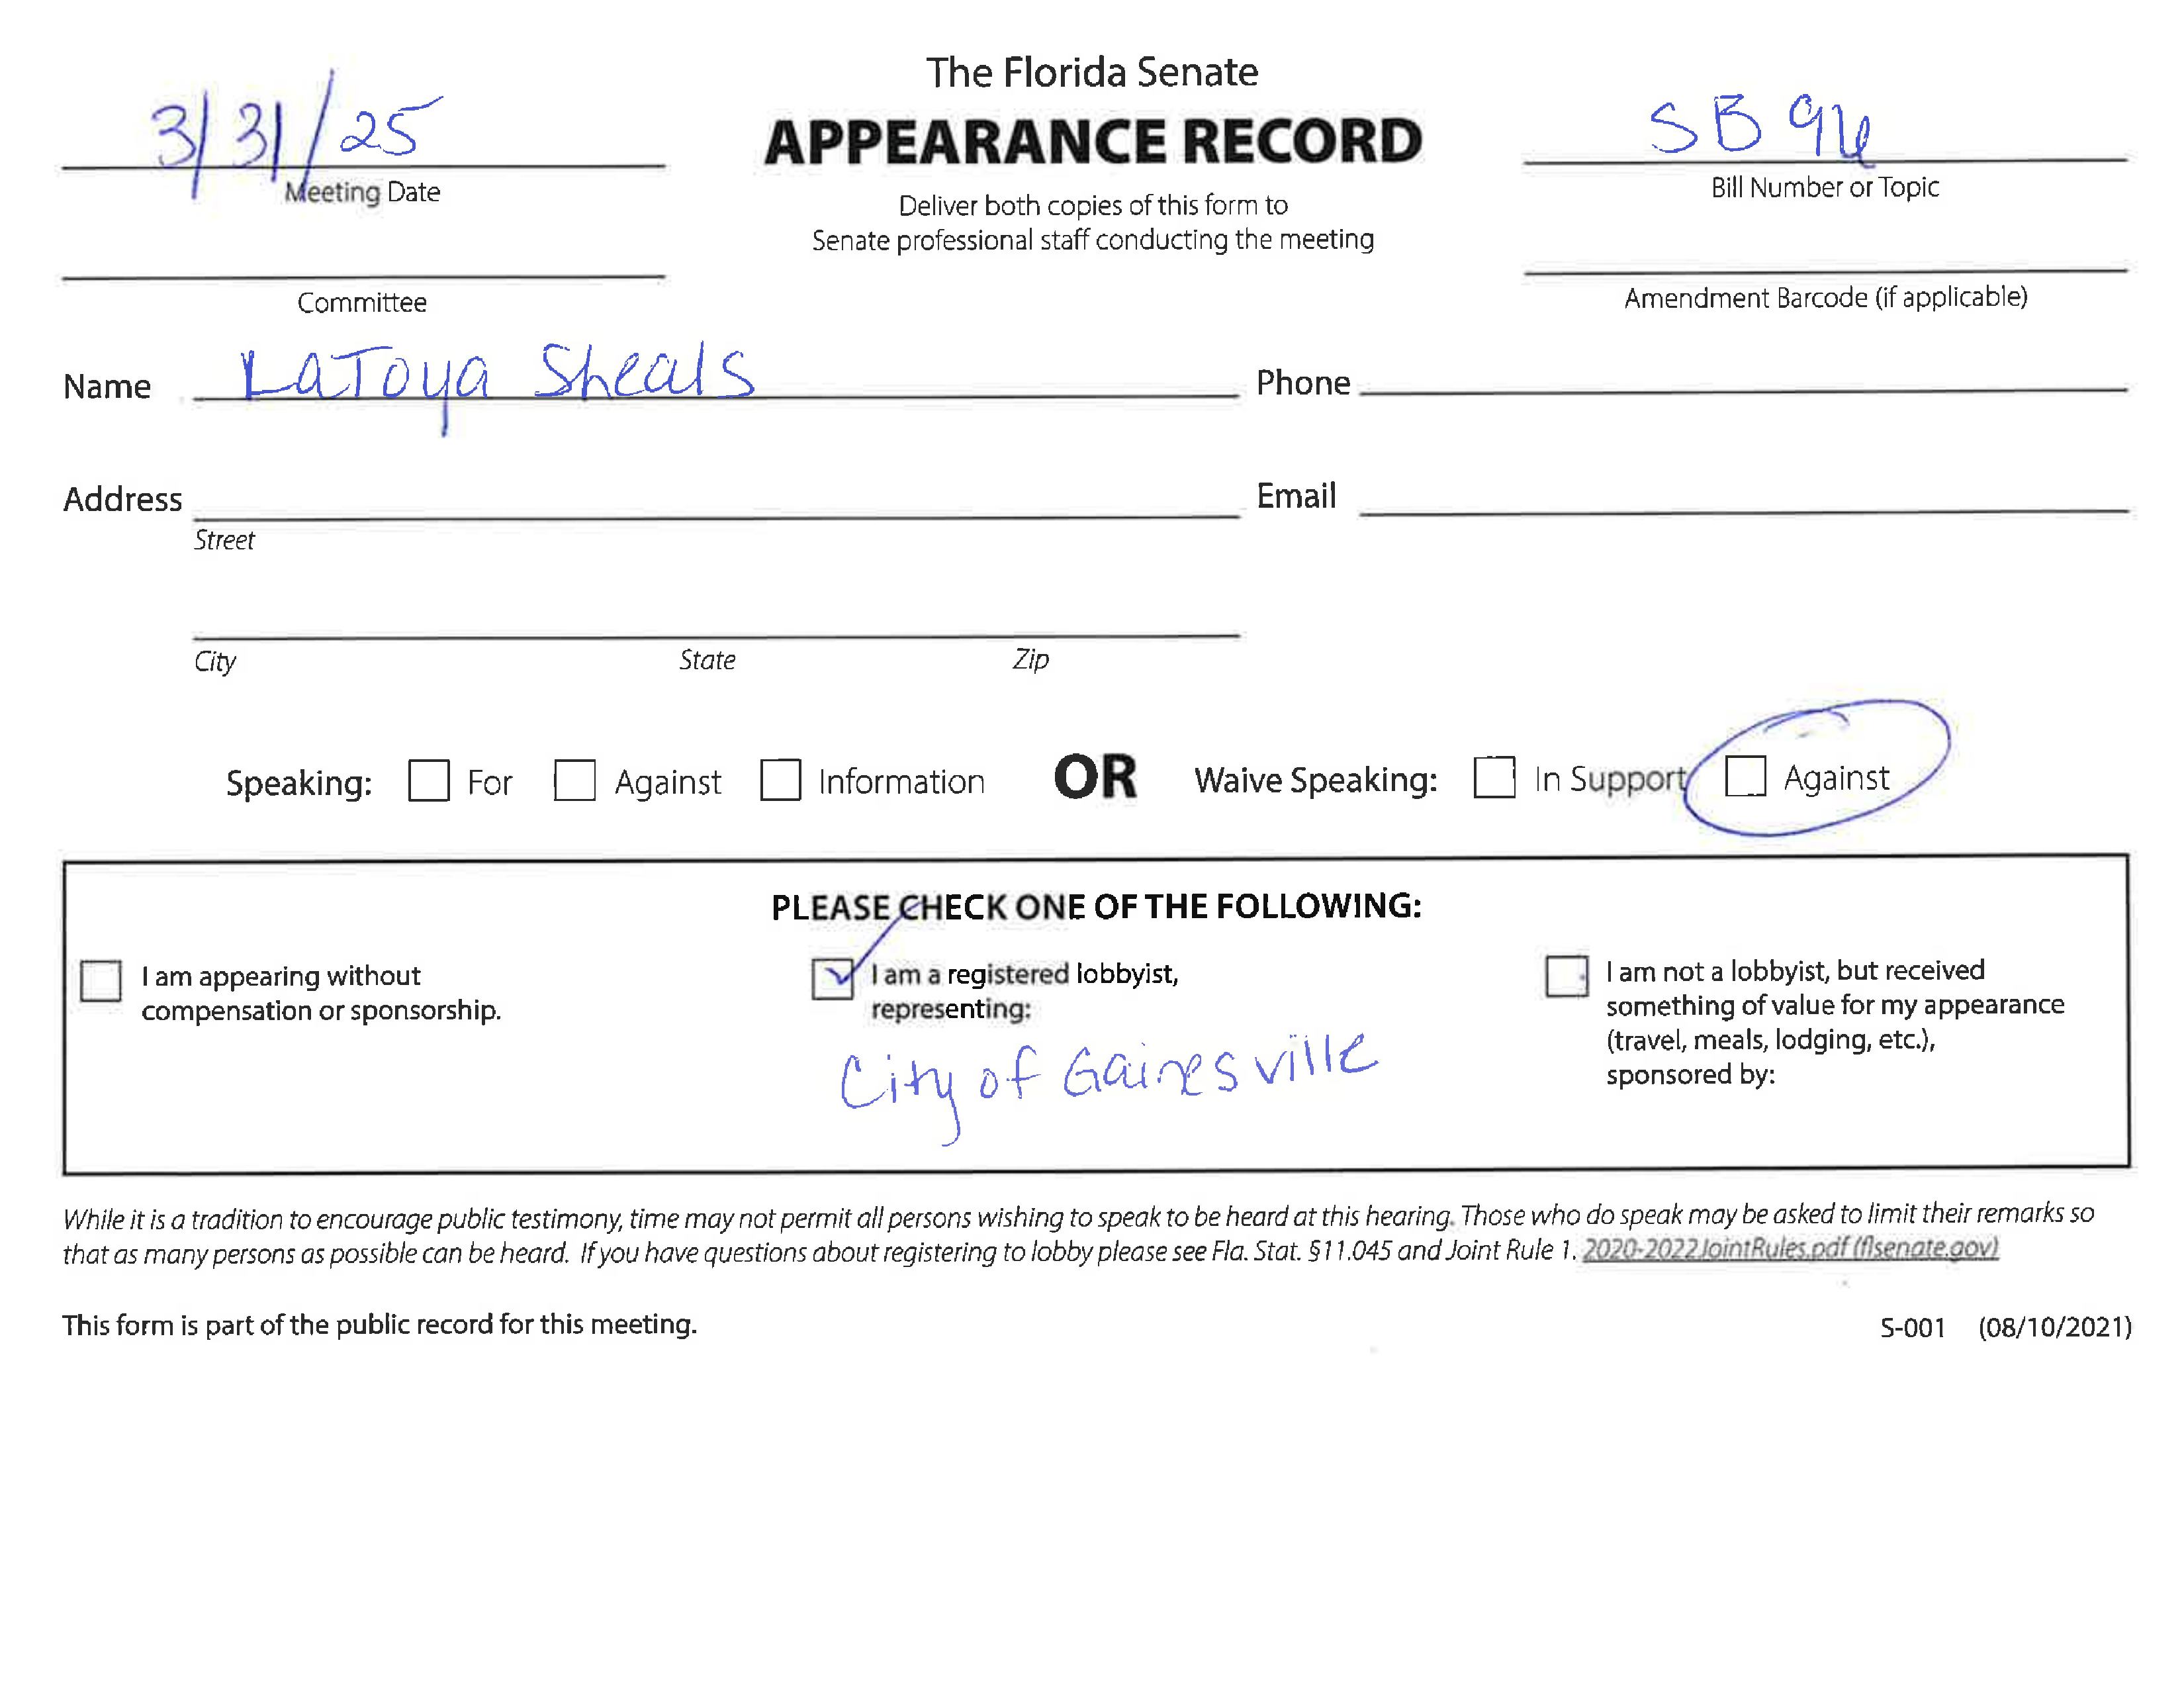 The Florida Senate
APPEARANCE RECORD
Deliver both copies of this form to
Senate professional staff conducting the meeting
3/31/25
Meeting Date
SB
Bill Number or Topic
Committee
Amendment Barcode (if applicable)
Name LaToya Sheals
Phone
Address
Email
Street
City State Zip
Speaking: For Against Information OR Waive Speaking: In Support Against
PLEASE CHECK ONE OF THE FOLLOWING:
I am appearing without
compensation or sponsorship.
I am a registered lobbyist,
representing:
City of Gainesville
I am not a lobbyist, but received
something of value for my appearance
(travel, meals, lodging, etc.),
sponsored by:
While it is a tradition to encourage public testimony, time may not permit all persons wishing to speak to be heard at this hearing. Those who do speak may be asked to limit their remarks so
that as many persons as possible can be heard. If you have questions about registering to lobby please see Fla. Stat. §11.045 and Joint Rule 1. 2020-2022JointRules.pdf (flsenate.gov)
This form is part of the public record for this meeting.
S-001 (08/10/2021)